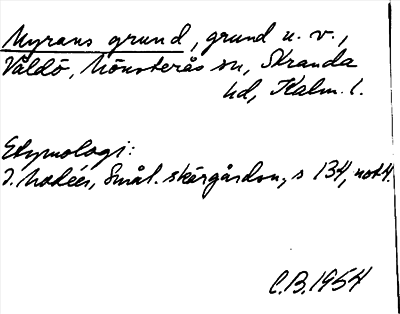 Myrans grund, grund u. v.,
Våldö, Mönsterås sn, Stranda
hd, Kalm. l.
Etymologi:
J. Modéer, Smål. skärgården, s 134, not 4.
C.B. 1954